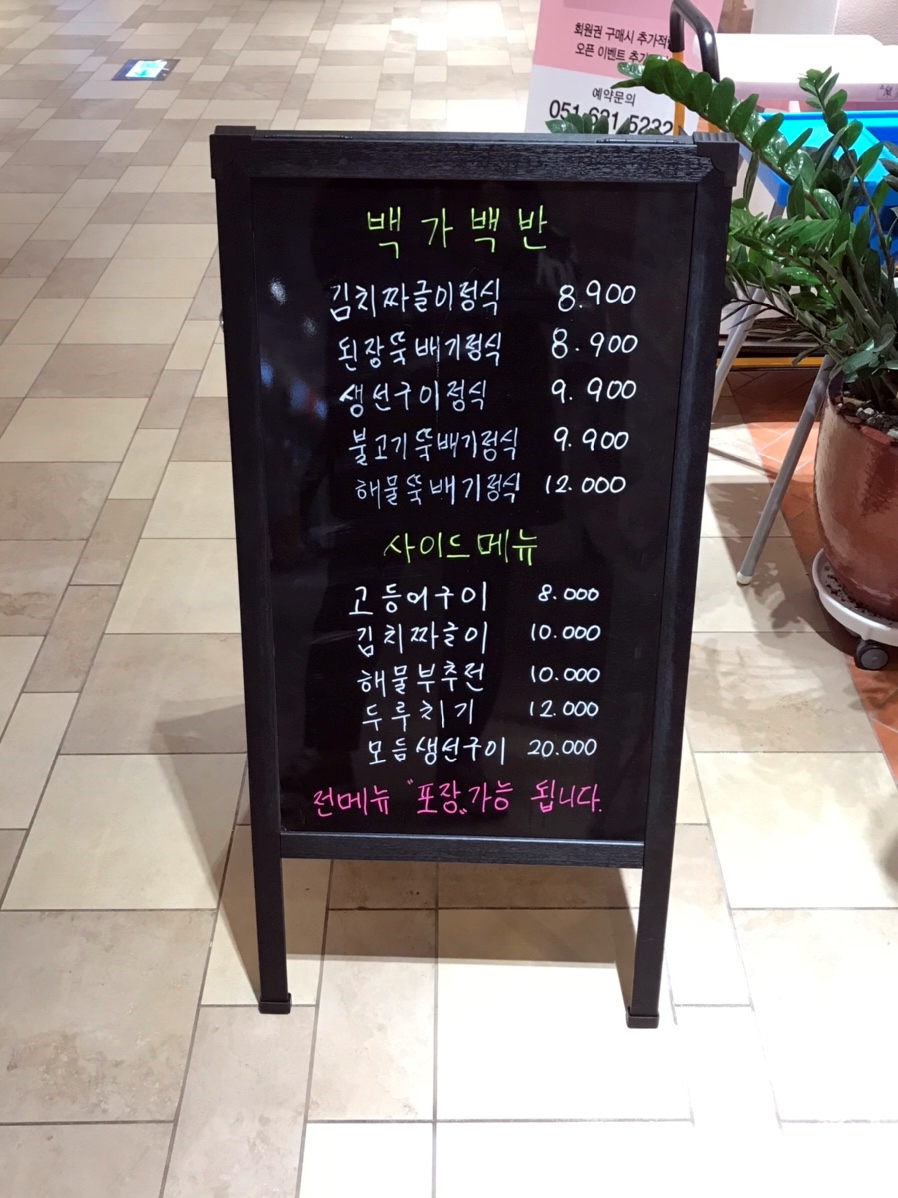 회원권 구매시
오픈 이벤트
예약문의
백가백반
김치짜글이정식 8.900
된장뚝배기정식 8.900
생선구이정식 9.900
불고기뚝배기정식 9.900
해물뚝배기정식 12.000
사이드메뉴
고등어구이 8.000
김치짜글이 10.000
해물부추전 10.000
두루치기 12.000
모듬생선구이 20.000
전메뉴 "포장" 가능 됩니다.